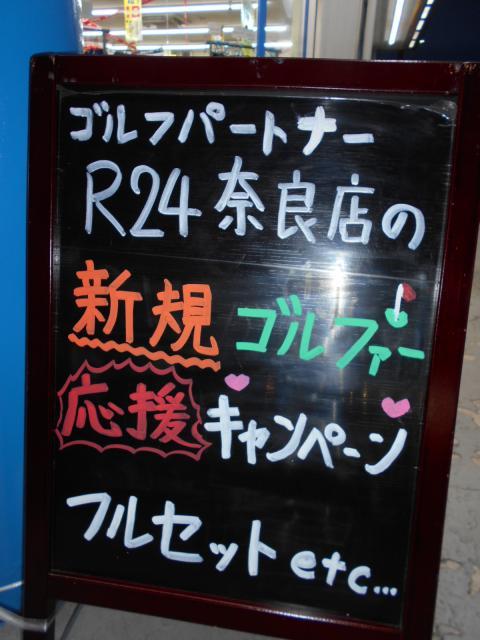 ゴルフパートナー
R24奈良店の
新規ゴルファー
応援キャンペーン
フルセットetc...